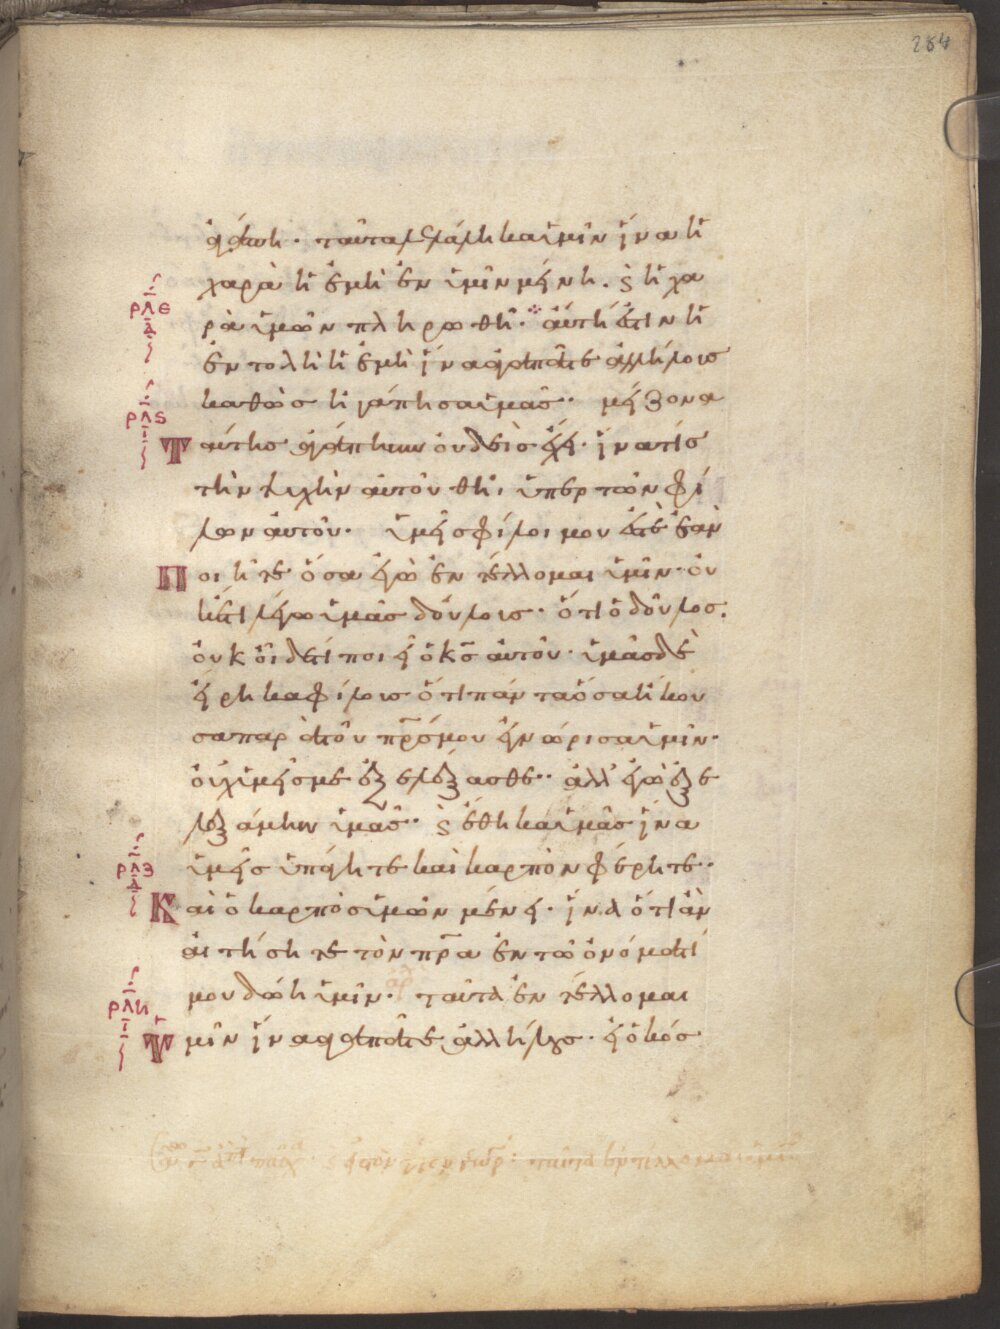 284
ἀγάπη· ταῦτα λελάληκα ὑμῖν ἵνα ἡ
χαρὰ ἡ ἐμὴ ἐν ὑμῖν μείνη. ϛ ἡ χα
ρλε
δ
ρὰ ὑμῶν πληρωθῆ· αὕτη ἐστὶν ἡ
ἐντολὴ ἡ ἐμὴ ἵνα ἀγαπᾶτε ἀλλήλους
καθὼς ἠγάπησα ὑμᾶς· μείζονα
ρλϛ
ι
Ταύτης ἀγάπην οὐδεὶς ἔχει· ἵνα τίς
τὴν ψυχὴν αὐτοῦ θῆ, ὑπερ τῶν φί
λων αὐτοῦ· ὑμεῖς φίλοι μου ἐστὲ ἐὰν
Ποιῆτε ὅσα ἐγὼ ἐντέλλομαι ὑμῖν· οὐ
κέτι λέγω ὑμᾶς δούλους· ὅτι ὁ δοῦλος
οὐκ οἶδε τί ποιεῖ ὁ κ̅ς̅ αὐτοῦ· ὑμᾶς δὲ
εἴρηκα φίλους ὅτι πάντα ὅσα ἤκου
σα παρὰ τοῦ πρ̅ς̅ μου ἐγνώρισα ὑμῖν·
οὐχ ὑμεῖς με ἐξελέξασθε· ἀλλ' ἐγὼ ἐξε
λεξάμην ὑμᾶς· ϛ ἔθηκα ὑμᾶς ἵνα
ὑμεῖς ὑπάγητε καὶ καρπὸν φέρητε·
ρλζ
δ
Καὶ ὁ καρπὸς ὑμῶν μένει· ἵνα ὅτι ἂν
αἰτήσητε τὸν πρ̅α̅ ἐν τῶ ὀνόματί
μου δώη ὑμῖν· ταῦτα ἐντέλλομαι
ρλη
ι
Ὑμῖν ἵνα ἀγαπᾶτε ἀλλήλους· εἰ ὁ κόσ
ταῦτα ἐντέλλομαι ὑμῖν